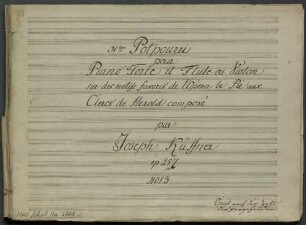 Potpourri
pour
Piano Forte et Flute ou Violon
sur des motifs favoris de l'Opéra le Pré aux
Clercs de Herold composé
par
Joseph Küffner
op 257
No 13